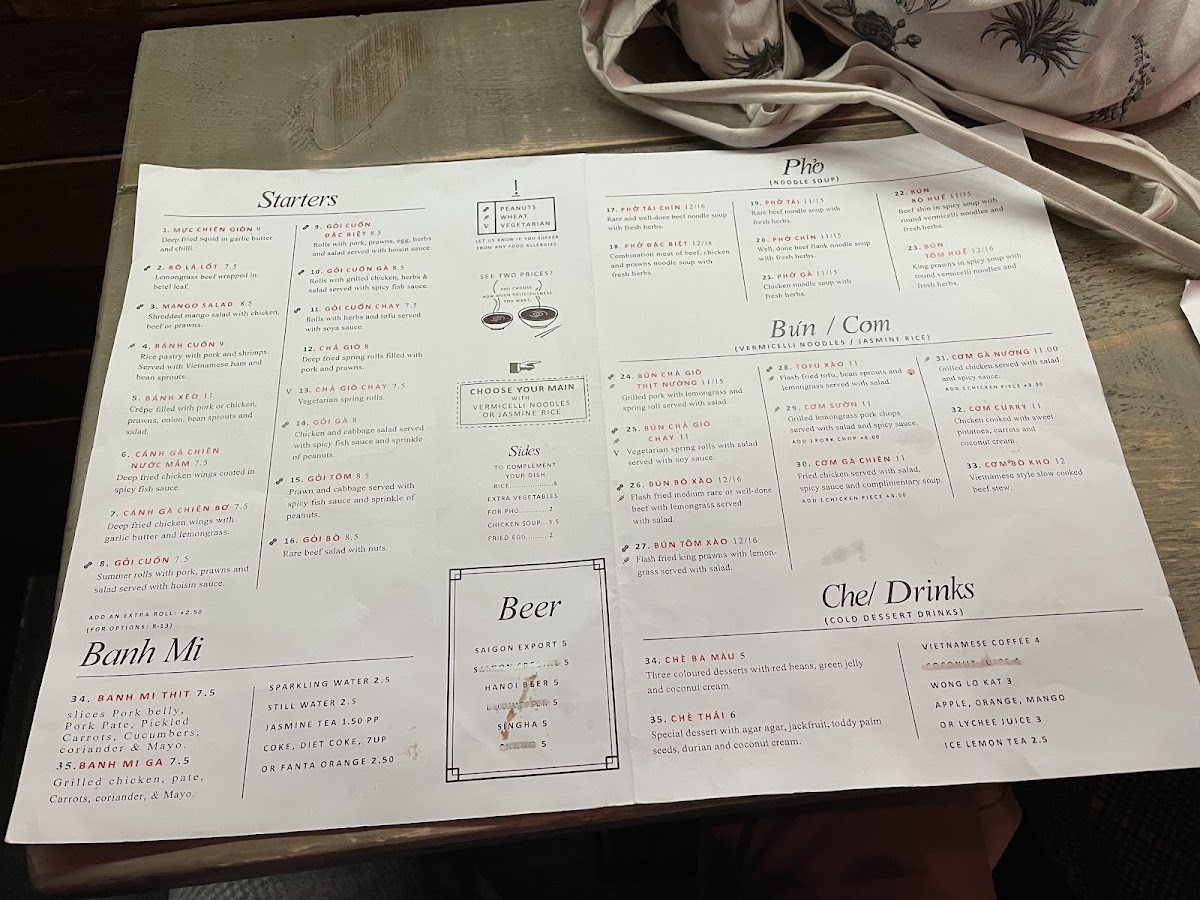 Starters
1. MỰC CHIÊN GIÒN 9
Deep fried squid in garlic butter
and chilli.
2. BÒ LÁ LỐT 7.5
Lemongrass beef wrapped in
betel leaf.
3. MANGO SALAD 8.5
Shredded mango salad with chicken,
beef or prawns.
4. BÁNH CUỐN 9
Rice pastry with pork and shrimps
Served with Vietnamese ham and
bean sprouts.
5. BÁNH XÈO 11
Crêpe filled with pork or chicken,
prawns, onion, bean sprouts and
salad.
6. CÁNH GÀ CHIÊN
NƯỚC MẮM 7.5
Deep fried chicken wings coated in
spicy fish sauce.
7. CÁNH GÀ CHIÊN BƠ 7.5
Deep fried chicken wings with
garlic butter and lemongrass.
8. GỎI CUỐN 7.5
Summer rolls with pork, prawns and
salad served with hoisin sauce.
ADD AN EXTRA ROLL: +2.50
(FOR OPTIONS: 8-13)
9. GỎI CUỐN
ĐẶC BIỆT 8.5
Rolls with pork, prawns, egg, herbs
and salad served with hoisin sauce.
10. GỎI CUỐN GÀ 8.5
Rolls with grilled chicken, herbs &
salad served with spicy fish sauce.
11. GỎI CUỐN CHAY 7.5
Rolls with herbs and tofu served
with soya sauce.
12. CHẢ GIÒ 8
Deep fried spring rolls filled with
pork and prawn.
V 13. CHẢ GIÒ CHAY 7.5
Vegetarian spring rolls.
14. GỎI GÀ 8
Chicken and cabbage salad served
with spicy fish sauce and sprinkle
of peanuts.
15. GỎI TÔM 8.5
Prawn and cabbage served with
spicy fish sauce and sprinkle of
peanuts.
16. GỎI BÒ 8.5
Rare beef salad with nuts.
!
PEANUTS
WHEAT
V VEGETARIAN
LET US KNOW IF YOU SUFFER
FROM ANY FOOD ALLERGIES.
SEE TWO PRICES?
YOU CHOOSE
HOW MUCH DELICIOUSNESS
YOU WANT.
CHOOSE YOUR MAIN
WITH
VERMICELLI NOODLES
OR JASMINE RICE
Sides
TO COMPLEMENT
YOUR DISH
RICE..............4
EXTRA VEGETABLES
FOR PHO............2
CHICKEN SOUP...3.5
FRIED EGG.........2
Banh Mi
34. BANH MI THIT 7.5
slices Pork belly,
Pork Pate, Pickled
Carrots, Cucumbers,
coriander & Mayo.
35.BANH MI GA 7.5
Grilled chicken, pate,
Carrots, coriander, & Mayo.
SPARKLING WATER 2.5
STILL WATER 2.5
JASMINE TEA 1.50 PP
COKE, DIET COKE, 7UP
OR FANTA ORANGE 2.50
Beer
SAIGON EXPORT 5
SAIGON SPECIAL 5
HANOI BEER 5
BUDWEISER 5
SINGHA 5
5
Phở
(NOODLE SOUP)
17. PHỞ TÁI CHÍN 12/16
Rare and well-done beef noodle soup
with fresh herbs.
18. PHỞ ĐẶC BIỆT 12/16
Combination meat of beef, chicken
and prawns noodle soup with
fresh herbs.
19. PHỞ TÁI 11/15
Rare beef noodle soup with
fresh herbs.
20. PHỞ CHÍN 11/15
Well, done beef flank noodle soup
with fresh herbs.
21. PHỞ GÀ 11/15
Chicken noodle soup with
fresh herbs.
22. BÚN
BÒ HUẾ 11/15
Beef shin in spicy soup with
round vermicelli noodles and
fresh herbs.
23. BÚN
TÔM HUẾ 12/16
King prawns in spicy soup with
round vermicelli noodles and
fresh herbs.
Bún / Com
(VERMICELLI NOODLES / JASMINE RICE)
24. BÚN CHẢ GIÒ
THỊT NƯỚNG 11/15
Grilled pork with lemongrass and
spring roll served with salad.
25. BÚN CHẢ GIÒ
CHAY 11
V Vegetarian spring rolls with salad
served with soy sauce.
26. BÚN BÒ XÀO 12/16
Flash fried medium rare or well-done
beef with lemongrass served
with salad.
27. BÚN TÔM XÀO 12/16
Flash fried king prawns with lemon-
grass served with salad.
28. TOFU XÀO 11
Flash fried tofu, bean sprouts and
lemongrass served with salad.
29. CƠM SƯỜN 11
Grilled lemongrass pork chops
served with salad and spicy sauce.
ADD 1 PORK CHOP +6.00
30. CƠM GÀ CHIÊN 11
Fried chicken served with salad,
spicy sauce and complimentary soup.
ADD 1 CHICKEN PIECE +3.00
31. CƠM GÀ NƯỚNG 11.00
Grilled chicken served with salad
and spicy sauce.
ADD 1 CHICKEN PIECE +3.00
32. CƠM CURRY 11
Chicken cooked with sweet
potatoes, carrots and
coconut cream.
33. CƠM BÒ KHO 12
Vietnamese style slow cooked
beef stew.
Che/ Drinks
(COLD DESSERT DRINKS)
34. CHÈ BA MÀU 5
Three coloured desserts with red beans, green jelly
and coconut cream.
35. CHÈ THÁI 6
Special dessert with agar agar, jackfruit, toddy palm
seeds, durian and coconut cream.
VIETNAMESE COFFEE 4
COCONUT JUICE 4
WONG LO KAT 3
APPLE, ORANGE, MANGO
OR LYCHEE JUICE 3
ICE LEMON TEA 2.5